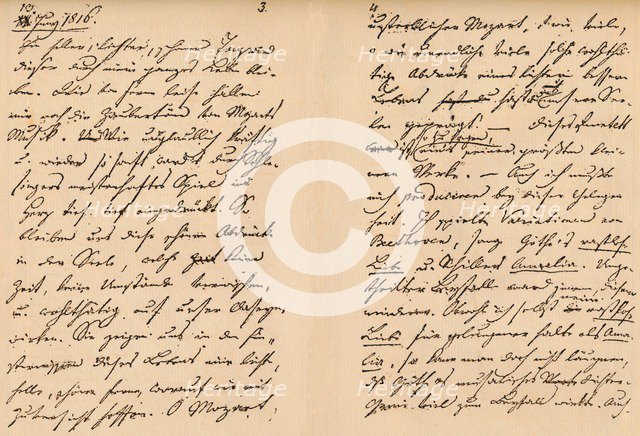 13. Juny 1816.
3.
heller, lichter, schöner Tag wird
dieser durch mein ganzes Leben blei-
ben. Wie von ferne leise hallen
mir noch die Zaubertöne von Mozarts
Musik. Wie unglaublich kräftig
u. wieder so sanft ward's durch Schle-
singers meisterhaftes Spiel ins
Herz tief eingedrückt. So
bleiben uns diese schönen Abdrücke
in der Seele, welche keine
Zeit, keine Umstände verwischen,
u. wohlthätig auf unser Daseyn
wirken. Sie zeigen uns in den Fin-
sternissen dieses Lebens eine lichte,
helle, schöne Ferne, worauf wir mit
Zuversicht hoffen. O Mozart,
4.
unsterblicher Mozart, wie viele,
o wie unendlich viele solche wohlthä-
tige Abdrücke eines lichtern bessern
Lebens hast du in unsere See-
len geprägt. — Dieses Quintett
ist so zu sagen, eins seiner größten klei-
nern Werke. — Auch ich mußte
mich produciren bey dieser Gelegen-
heit. Ich spielte Variationen von
Beethoven, sang Göthe's rastlose
Liebe u. Schillers Amalia. Unge-
theilter Beyfall ward jenem, diesem
minderer. Obwohl ich selbst meine rastlose
Liebe für gelungener halte als Ama-
lia, so kann man doch nicht läugnen,
daß Göthe's musikalisches Dichter-
Genie viel zum Beyfall wirkte. Auch